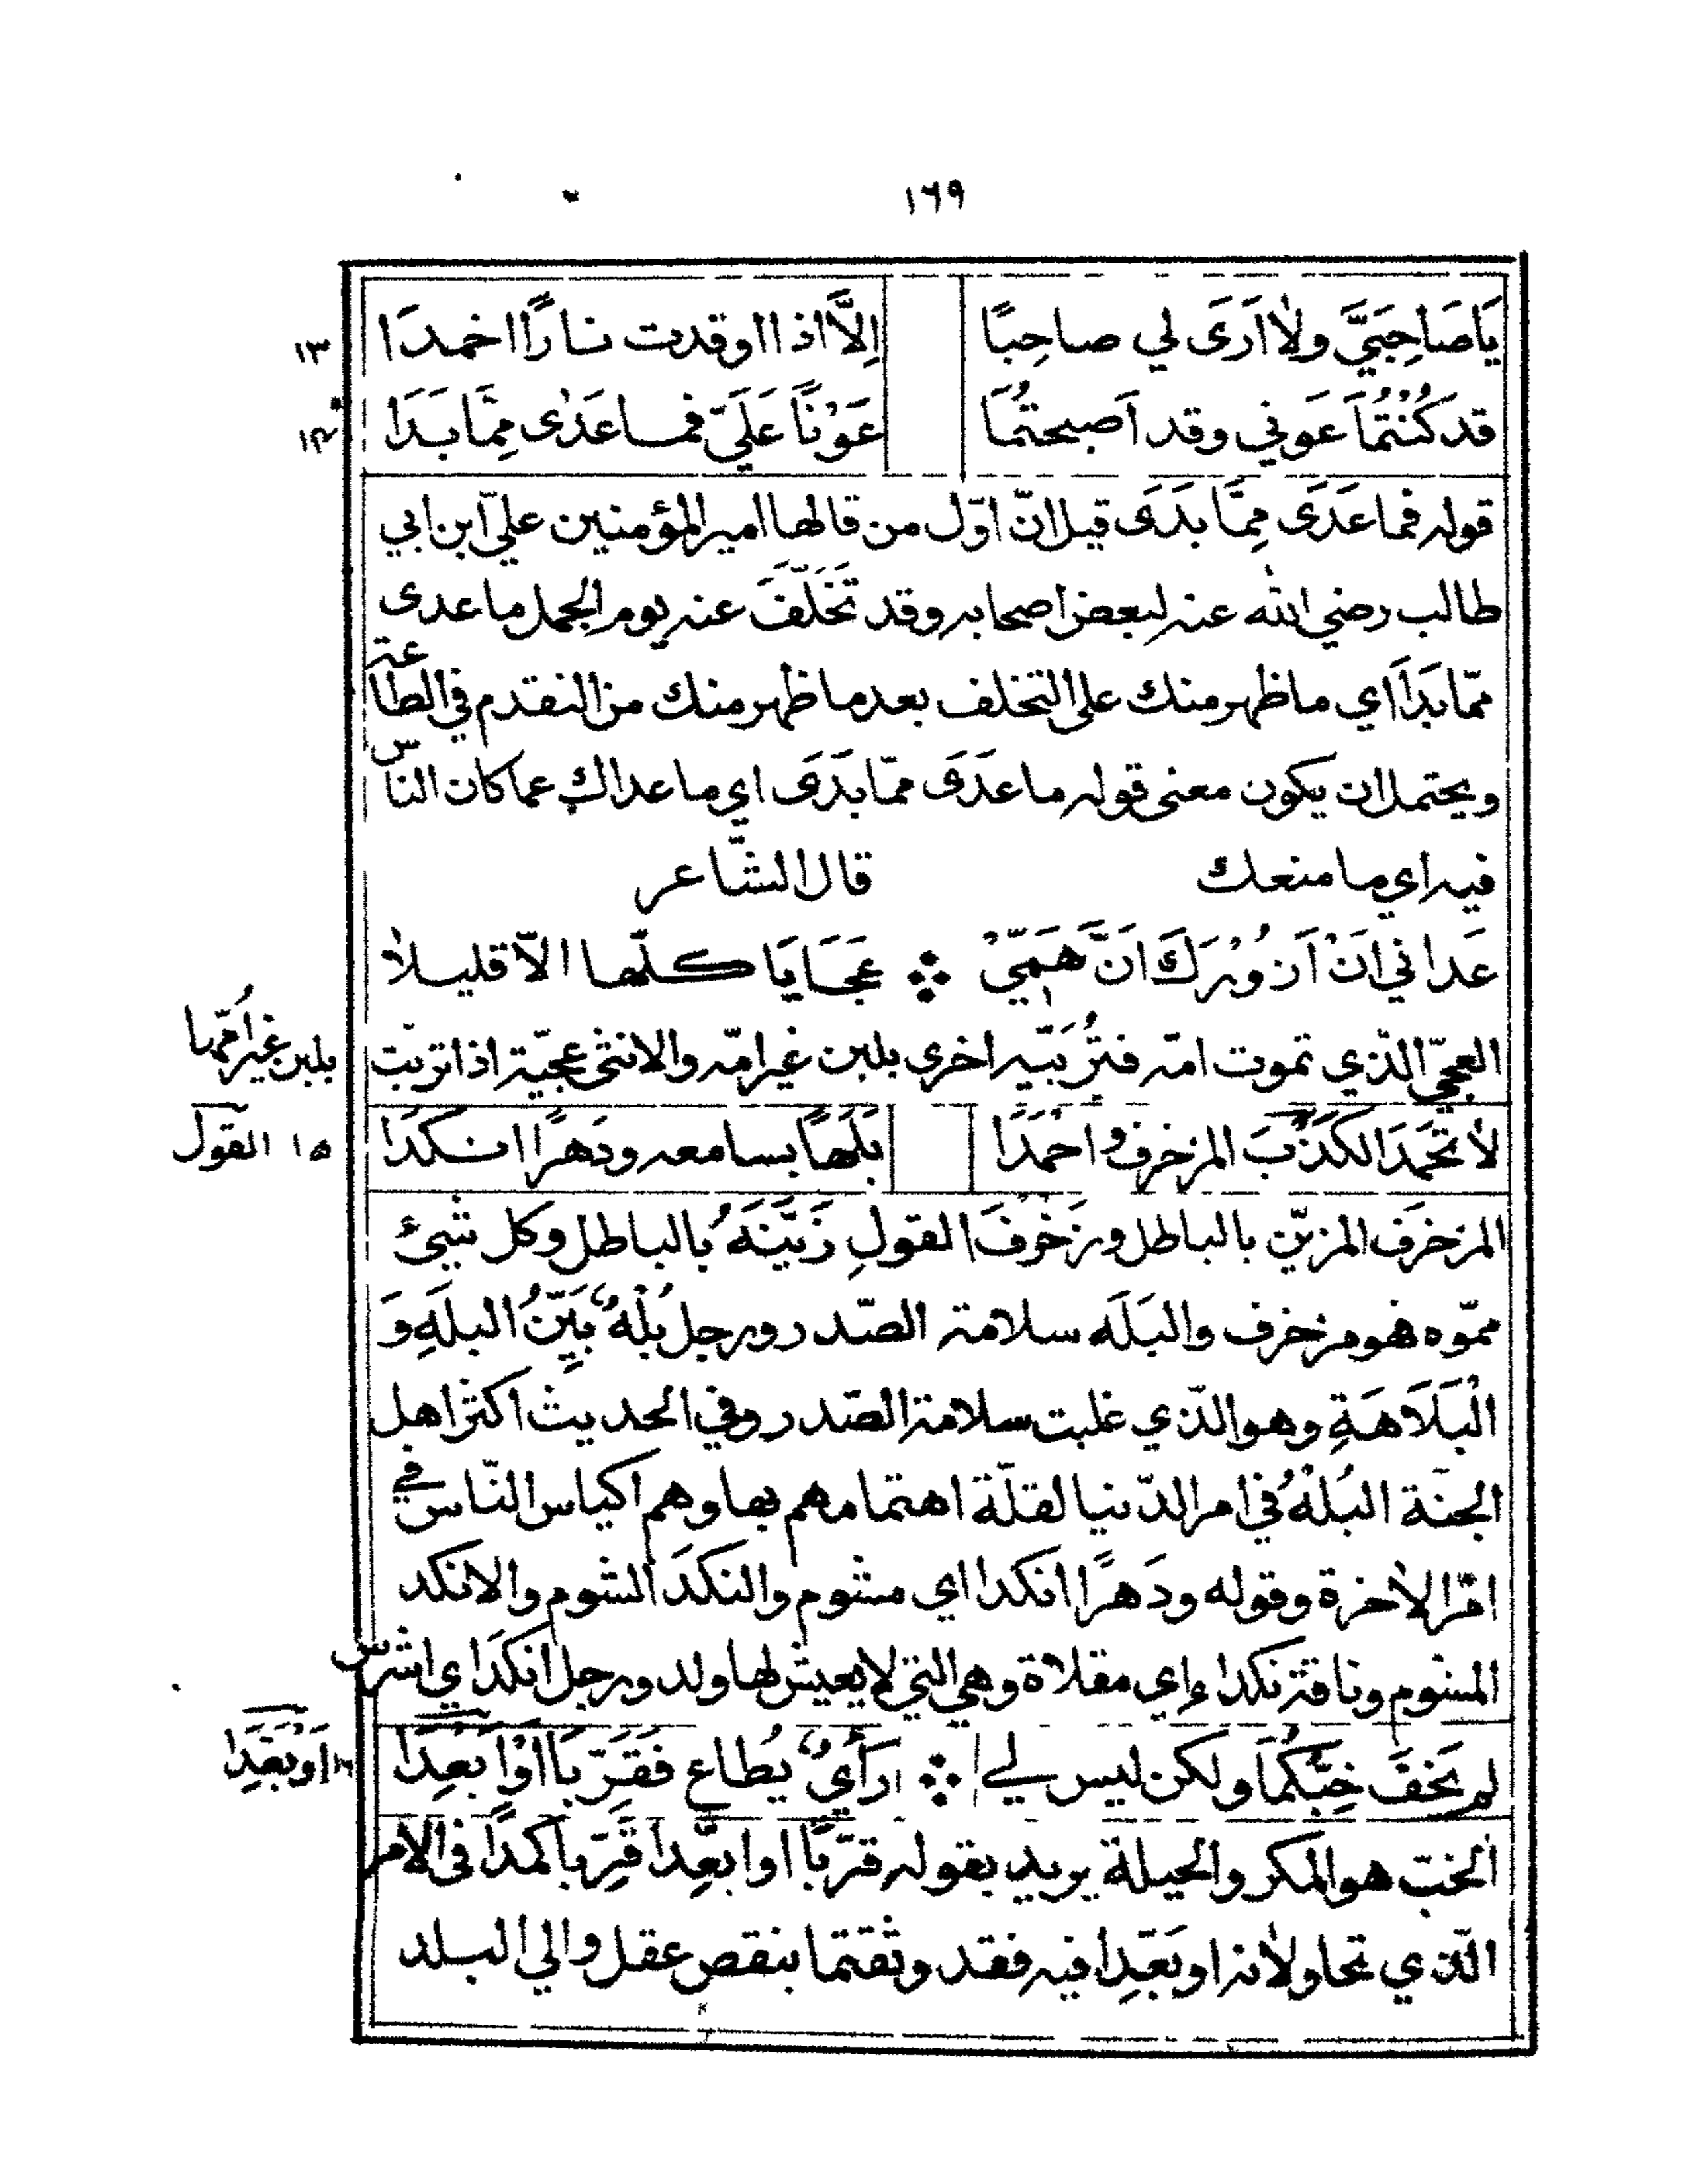 ١٦٩
يَاصَاحِبَيَّ ولاأَرَى لي صاحِبًا إلاَّ اذا اوقدت نارًا اخمدَا ١٣
قد كُنْتُمَا عَوني وقد اَصبحتُمَا عَوْنًا عَلَيّ فما عَدٰى مِمَّا بَدَا ١٤
قوله فما عَدَى مِمَّا بَدَى قيل انّ اوّل من قالها امير المؤمنين عليّ ابن ابي
طالب رضي الله عنه لبعض اصحابه وقد تَخَلَّفَ عنه يوم الجمل ما عدى
ممّا بَدَا اي ما ظهر منك على التخلف بعد ما ظهر منك من التقدم في الطاعة
ويحتمل ان يكون معنى قوله ما عَدَى ممّا بَدَى اي ما عداك عما كان الناس
فيه اي ما منعك قال الشّاعر
عَداني انَ اَزُوْرَكَ انَّ هَمِّيْ ❖ عَجَايَا كلّها الاّ قليلاً
العجيّ الذي تموت امّه فتُرَبّيه اخرى بلبن غير امّه والانثى عجيّة اذا تربّت
بلبن غير اُمّها
لاَ تَحْمَدَا الكَذِبَ المزخرف واحْمَدَا بَلَهاً بسامعه ودَهرًا انكَدَا ١٥ القول
المزخرَف المزيّن بالباطل وزَخْرَفَ القولِ زَيَّنَهُ بالباطل وكل شيئ
ممّوه فهو مزخرف والبَلَه سلامة الصّدر ورجل بُلْهٌ بَيِّنُ البلَهِ وَ
الْبَلَاهَةِ وهو الّذي غلبت سلامة الصّدر وفي الحديث اكثر اهل
الجنة البُلْهُ في امر الدّنيا لقلّة اهتمامهم بها وهم اكياس النّاس في
امر الاخرة وقوله ودَهرًا انكدا اي مشوم والنكَد الشوم والانكد
المشوم وناقة نكداء اي مقلاة وهي التي لا يعيش لها ولد ورجل انكدَ اي اشرس
لم يَخفَ خِبُّكُمَا ولكن ليس لي ❖ رَأْيٌ يُطاع فَقَرِّبَا اَوْ اَبعِدَا ١٦ اَوْ بَعِّدَا
الخبّ هو المكر والحيلة يريد بقوله قرّبَا او ابعِدا قَرِّبا كمدًا في الامر
الّذي تحاولانه او بَعِّدا فيه فقد وثقتما بنقص عقل والي البلد